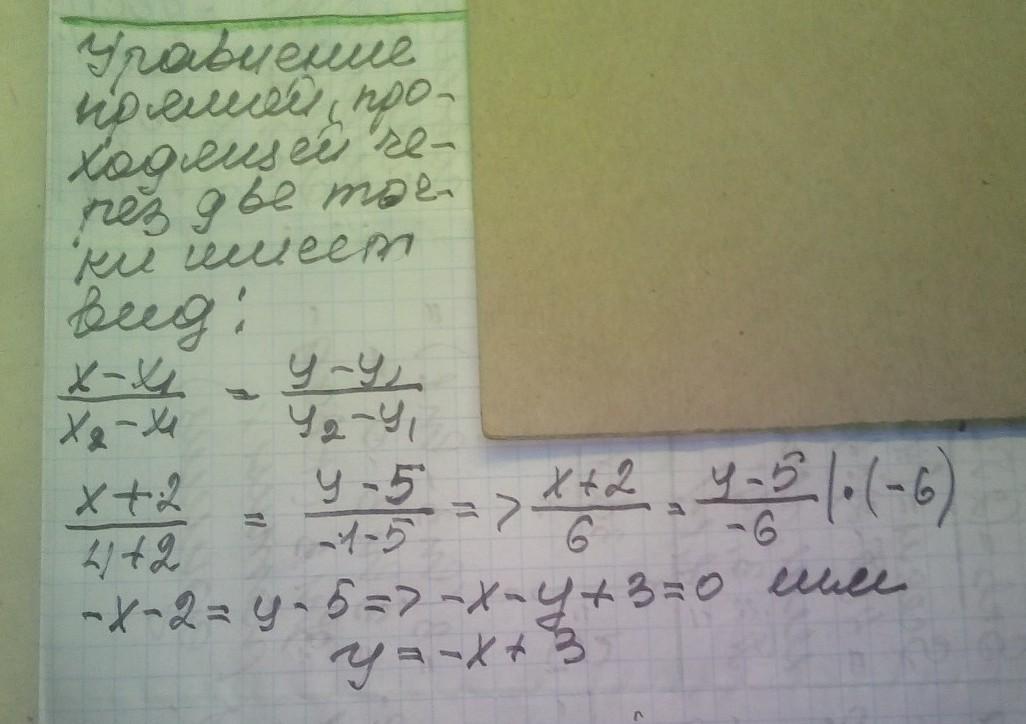 Уравнение
прямой, про-
ходящей че-
рез две точ-
ки имеет
вид:
(x-x₁)/(x₂-x₁) = (y-y₁)/(y₂-y₁)
(x+2)/(4+2) = (y-5)/(-1-5) => (x+2)/6 = (y-5)/-6 |·(-6)
-x-2=y-5=>-x-y+3=0 или
y=-x+3